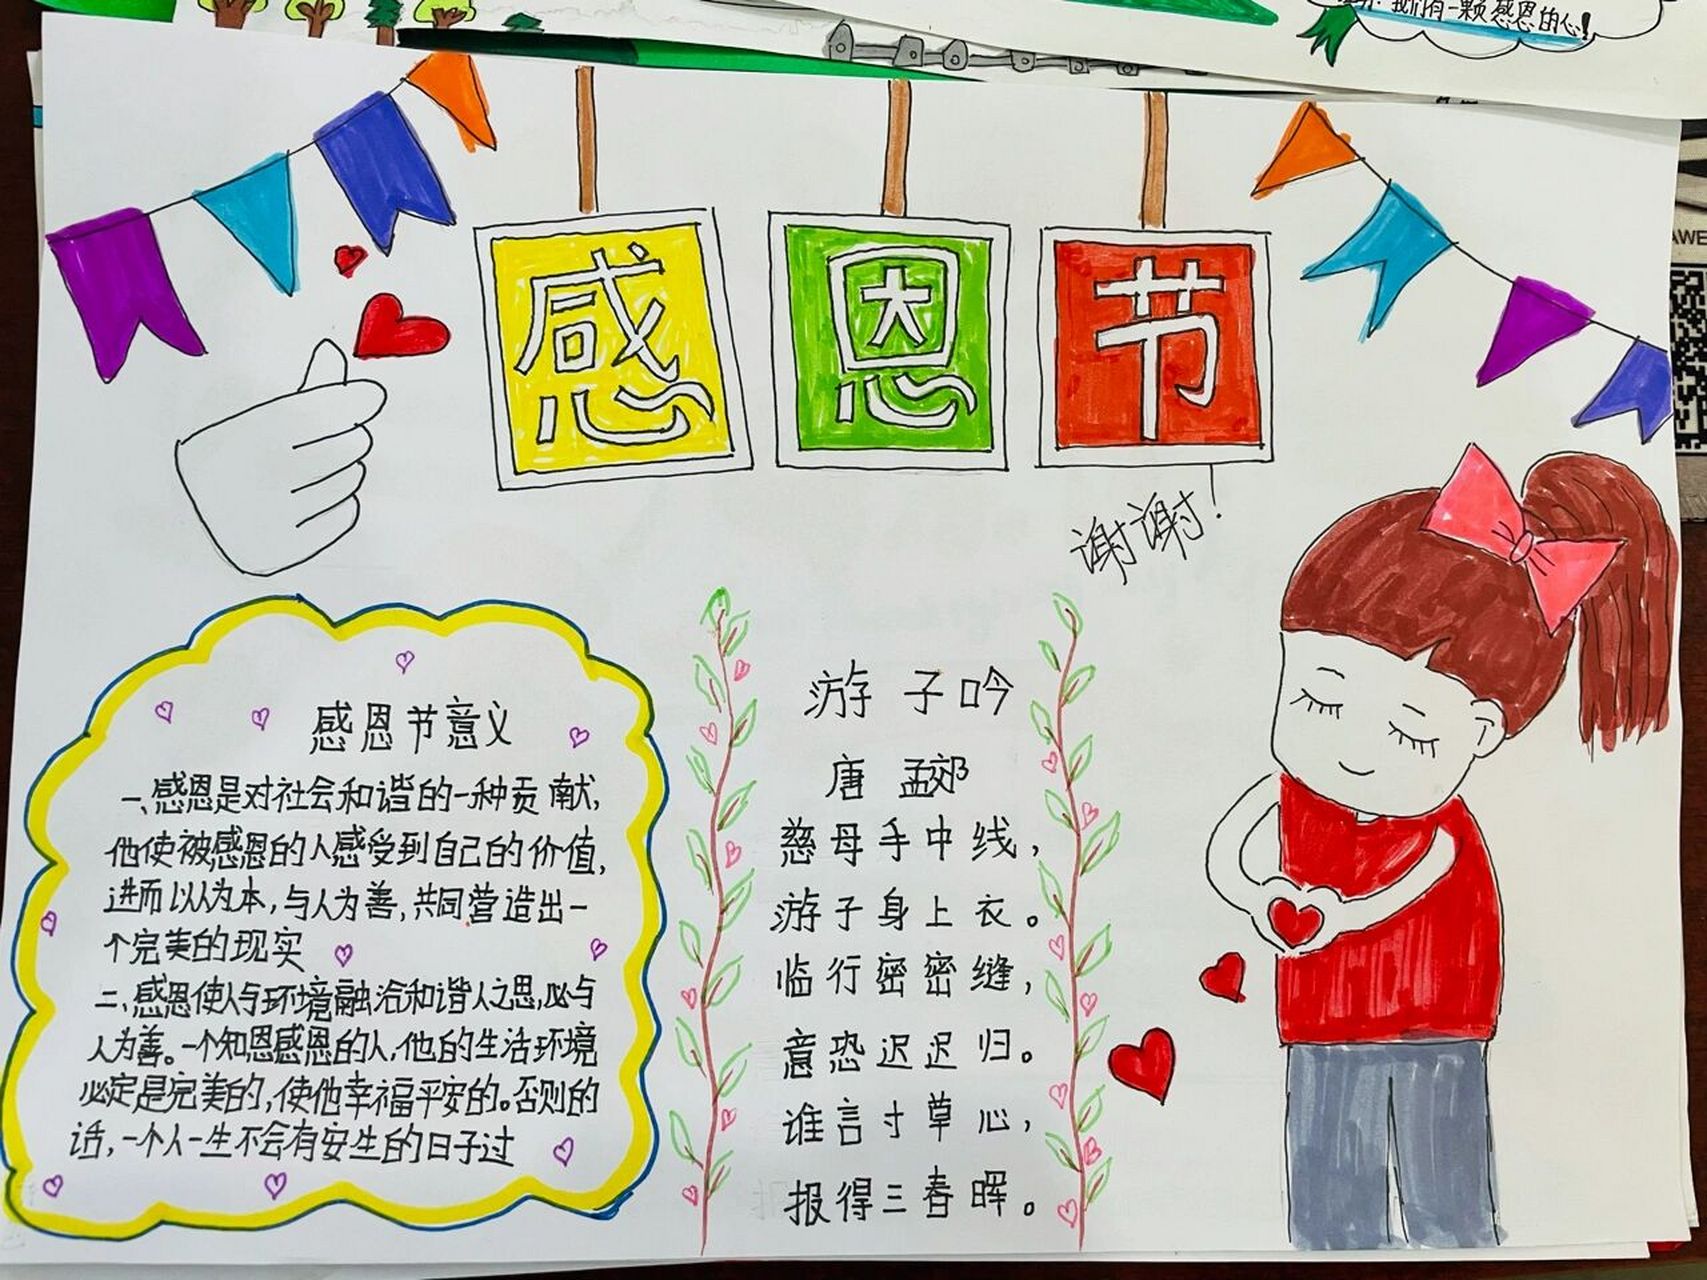 我们有一颗感恩的心!
感恩节
谢谢!
感恩节意义
一、感恩是对社会和谐的一种贡献,
他使被感恩的人感受到自己的价值,
进而以人为本,与人为善,共同营造出一
个完美的现实
二、感恩使人与环境融洽和谐人之恩,必与
人为善。一个知恩感恩的人,他的生活环境
必定是完美的,使他幸福平安的。否则的
话,一个人一生不会有安生的日子过
游子吟
唐 孟郊
慈母手中线,
游子身上衣。
临行密密缝,
意恐迟迟归。
谁言寸草心,
报得三春晖。